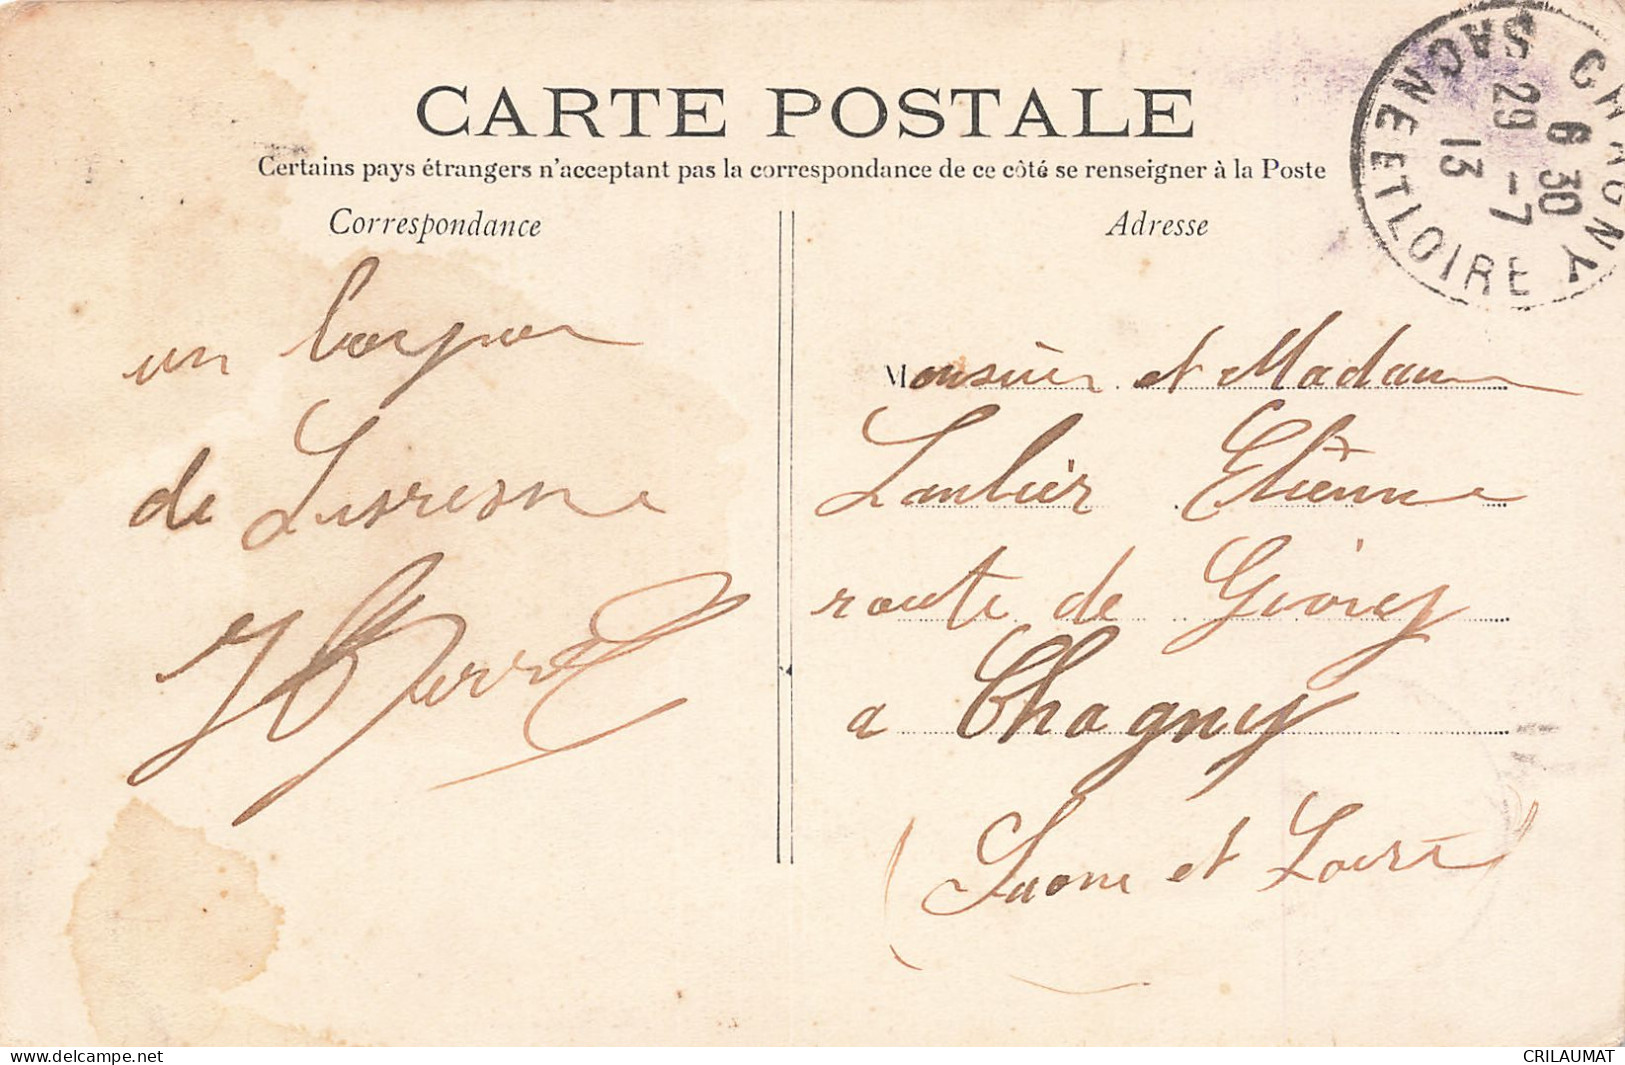 CARTE POSTALE
Certains pays étrangers n'acceptant pas la correspondance de ce côté se renseigner à la Poste
Correspondance
Adresse
CHAGNY
SAONE ET LOIRE
6 30
29 -7
13
un
de
Monsieur et Madame
Laubier Etienne
route de Givrey
a Chagny
(Saone et Loire)
delcampe.net
CRILAUMAT